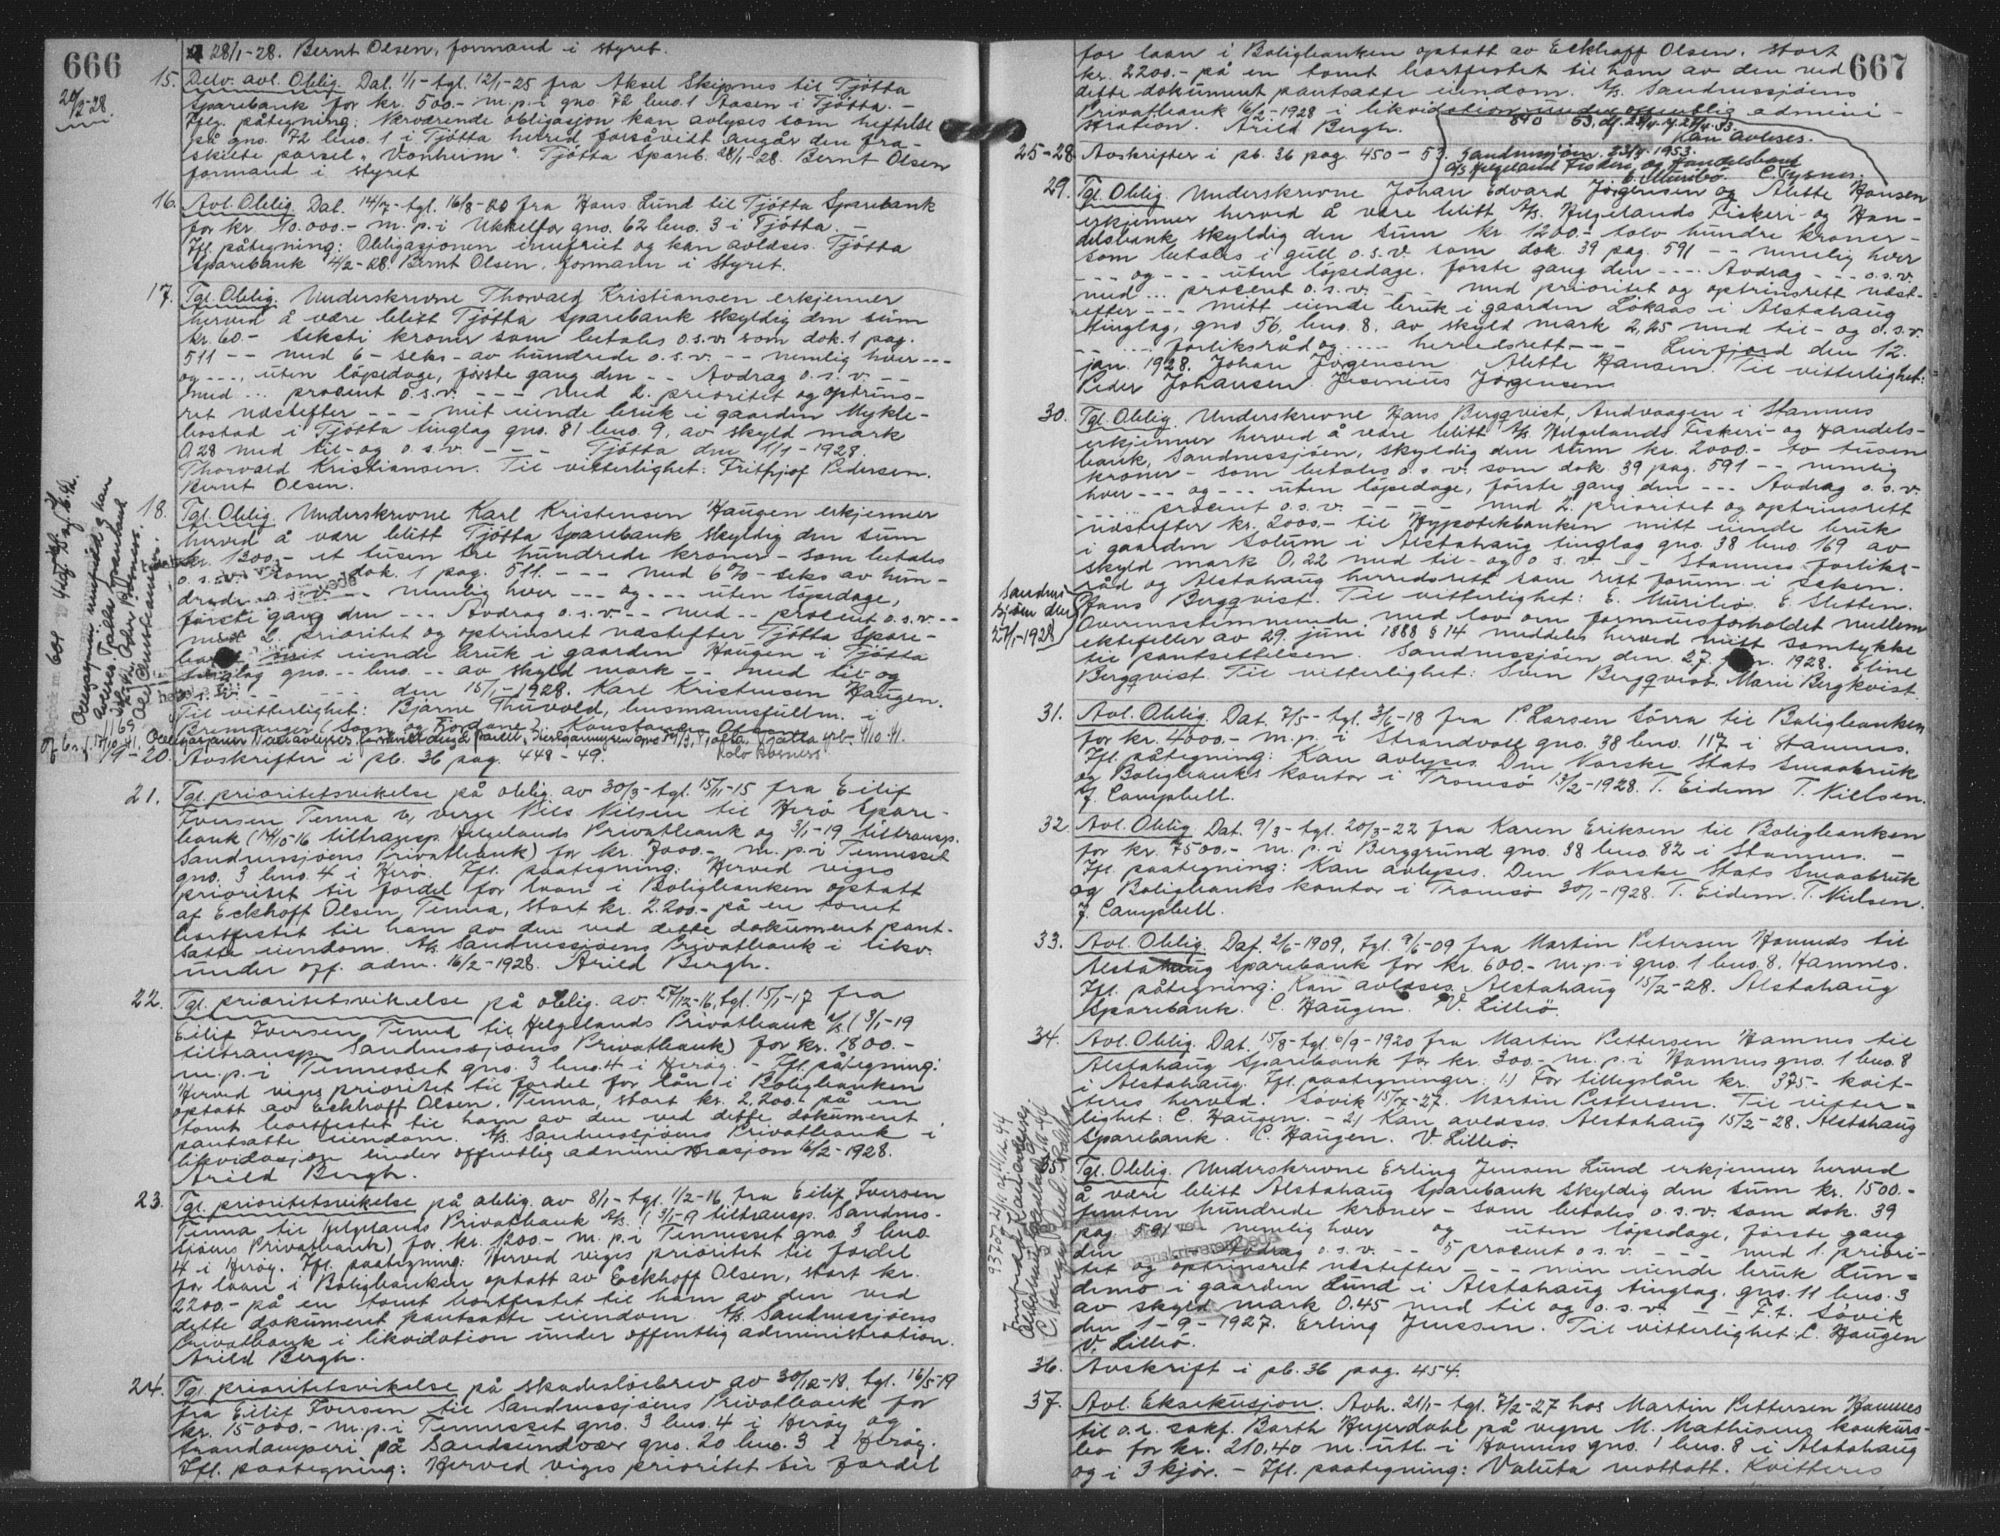 666
28/1-28. Bernt Olsen, formand i styret.
20/2-28.
15. Delv. avl. Oblig. Dat. 1/1- tgl. 12/1-25 fra Aksel Skipnes til Tjötta
Sparebank for kr. 500.- m.p.i gno. 72 bno. 1 Aasen i Tjötta. -
Iflg. påtegning: Nærværende obligasjon kan avlyses som heftelse
på gno. 72 bno. 1 i Tjötta herred forsåvidt angår den fra-
skilte parsel "Vonheim". Tjötta Spareb. 28/1-28. Bernt Olsen
formand i styret
16. Avl. Oblig. Dat. 14/7- tgl. 16/8-20 fra Hans Lund til Tjötta Sparebank
for kr. 10.000.- m.p.i gno. 62 bno. 3 i Tjötta. -
Ifl. påtegning: Obligasjonen innfriet og kan avlæses. Tjötta
Sparebank 4/2-28. Bernt Olsen, formann i styret.
17. Tgl. Oblig. Underskrevne Thorvald Kristiansen erkjenner
herved å være blitt Tjötta Sparebank skyldig den sum
kr. 60- seksti kroner som betales o.s.v. som dok. 1 pag.
511 -- med 6 - seks - av hundrede o.s.v. -- nemlig hver ---
og ---, uten löpedage, förste gang den -- Avdrag o.s.v. --
med ... procent o.s.v. --- med 2. prioritet og optrins-
ret næstefter --- mit eiende bruk i gaarden Mykle-
bostad i Tjötta tinglag gno. 81 bno. 9, av skyld mark
0,28 med til- og o.s.v. --- Tjötta den 1/1-1928.
Thorvald Kristiansen. Til vitterlighet: Fritjof Pedersen.
Bernt Olsen.
18. Tgl. Oblig. Underskrevne Karl Kristensen Haugen erkjenner
herved å være blitt Tjötta Sparebank skyldig den sum
kr. 1300,- et tusen tre hundrede kroner - som betales
o.s.v. som dok. 1 pag. 511. --- med 6% - seks av hun-
drede o.s.v. -- nemlig hver --- og --- uten löpedage,
förste gang den --- Avdrag o.s.v. -- med -- procent o.s.v. --
med 2. prioritet og optrinsret næstefter Tjötta Spare-
bank mit eiende bruk i gaarden Haugen i Tjötta
tinglag gno. -- bno. -- av skyld mark -- med til og
o.s.v. -- --- den 15/1-1928. Karl Kristensen Haugen.
Til vitterlighet: Bjarne Thuvold, lensmannsfullm. i
Bremanger (Sogn og Fjordane).
19-20. Avskrifter i pb. 36 pag. 448-49.
21. Tgl. prioritetsvikelse på oblig. av 30/3- tgl. 15/11-15 fra Eilif
Iversen Tenna v. verge Nils Nilsen til Herö Spare-
bank (14/10-16 tiltransp. Helgelands Privatbank og 3/1-19 tiltransp.
Sandnessjöens Privatbank) for kr. 7000.- m.p.i Tennesset
gno. 3 bno. 4 i Herö. Ifl. paategning: Herved viges
prioritet til fordel for laan i Boligbanken optatt
af Eckhoff Olsen, Tenna, stort kr. 2.200.- på en tomt
bortfestet til ham av den ved dette dokument pant-
satte eiendom. A/S. Sandnessjöens Privatbank i likv.
under off. adm. 16/2-1928. Arild Bergh.
22. Tgl. prioritetsvikelse på oblig. av 27/12-16, tgl. 15/1-17 fra
Eilif Iversen, Tenna til Helgelands Privatbank A/S (3/1-19
tiltransp. Sandnessjöens Privatbank) for kr. 1800.-
m.p.i Tennesset gno. 3 bno. 4 i Heröy. - Ifl. påtegning:
Herved viges prioritet til fordel for lån i Boligbanken
optatt av Eckhoff Olsen, Tenna, stort kr. 2.200.- på en
tomt bortfestet til ham av den ved dette dokument
pantsatte eiendom. A/S. Sandnessjöens Privatbank i
likvidasjon under offentlig administrasjon 16/2-1928.
Arild Bergh.
23. Tgl. prioritetsvikelse på oblig. av 8/1- tgl. 1/2-16 fra Eilif Iversen
Tenna til Helgelands Privatbank A/S. (3/1-19 tiltransp. Sandnes-
sjöens Privatbank) for kr. 1200.- m.p.i Tennesset gno. 3 bno.
4 i Heröy. Ifl. paategning: Herved viges prioritet til fordel
for laan i Boligbanken optatt av Eckhoff Olsen, stort kr.
2200.- på en tomt bortfestet til ham av den ved
dette dokument pantsatte eiendom A/S. Sandnessjöens
Privatbank i likvidation under offentlig administration.
Arild Bergh.
24. Tgl. prioritetsvikelse på skadeslösbrev av 30/12-18, tgl. 16/5-19
fra Eilif Iversen til Sandnessjöens Privatbank for
kr. 15000.- m.p.i Tennesset gno. 3 bno. 4 i Heröy og
trandamperi på Sandsundvær gno. 20 bno. 3 i Heröy.
Ifl. paategning: Herved viges prioritet til fordel
667
for laan i Boligbanken optatt av Eckhoff Olsen, stort
kr. 2200.- på en tomt bortfestet til ham av den ved
dette dokument pantsatte eiendom. A/S. Sandnessjöens
Privatbank 16/2-1928 i likvidation under offentlig admini-
stration. Arild Bergh.
Kan avleses.
Sandnessjöen, 23/3-1953.
A/S Helgeland Fiskeri og Handelsbank
25-28. Avskrifter i pb. 36 pag. 450-53.
29. Tgl. Oblig. Underskrevne Johan Edvard Jörgensen og Alette Hansen
erkjenner herved å være blitt A/S. Helgelands Fiskeri- og Han-
delsbank skyldig den sum kr 1200.- tolv hundre kroner -
som betales i gull o.s.v. som dok. 39 pag. 591 -- nemlig hver
--- og --- uten löpedage, förste gang den ---- Avdrag --- o.s.v.
med ... procent o.s.v. --- med prioritet og optrinsrett næst-
efter --- mitt eiende bruk i gaarden Lökaas i Alstahaug
tinglag, gno 56, bno. 8, av skyld mark 2,25 med til- og o.s.v.
-- ---, forliksråd og ---- herredsrett --- Leirfjord den 12.
jan. 1928. Johan Jörgensen Alette Hansen. Til vitterlighet:
Peder Johansen Jesenius Jörgensen
30. Tgl. Oblig. Underskrevne Hans Bergqvist, Andvaagen i Stamnes
erkjenner herved å være blitt A/S. Helgelands Fiskeri- og Handels-
bank, Sandnessjöen, skyldig den sum kr. 2000.- to tusen
kroner - som betales o.s.v. som dok 39 pag. 591 -- nemlig
hver --- og --- uten löpedage, förste gang den --- Avdrag o.s.v.
--- procent o.s.v. --- med 2. prioritet og optrinsrett
næstefter kr. 2000.- til Hypotekbanken mitt eiende bruk
i gaarden Solum i Alstahaug tinglag gno. 38 bno 169 av
skyld mark 0,22 med til- og o.s.v. -- Stamnes forliks-
råd og Alstahaug herredsrett som rett forum i saken.
Sandnessjöen den
27/1-1928
Hans Bergqvist. Til vitterlighet: E. Muribö. E. Sletten.
Overensstemmende med lov om formuesforholdet mellem
ektefeller av 29. juni 1888 § 14 meddeles herved mitt samtykke
til pantsettelsen. Sandnessjöen den 27. jan. 1928. Eline
Bergqvist. Til vitterlighet: Sven Bergqvist. Marie Bergkvist.
31. Avl. Oblig. Dat. 7/5- tgl. 3/6-18 fra P. Larsen Sörra til Boligbanken
for kr. 4000.- m.p.i Strandvoll gno. 38 bno. 117 i Stamnes.
Ifl. påtegning: Kan avlyses. Den Norske Stats Smaabruk
og Boligbanks kontor i Tromsö 13/2-1928. T. Eidem T. Nielsen.
J. Campbell.
32. Avl. Oblig. Dat. 9/3- tgl. 20/3-22 fra Karen Eriksen til Boligbanken
for kr. 7500.- m.p.i Berggrund gno. 38 bno. 82 i Stamnes. -
Ifl. paategning: Kan avlyses. Den Norske Stats Smaabruk
og Boligbanks kontor i Tromsö 30/1-1928. T. Eidem. T. Nielsen.
J. Campbell.
33. Avl. Oblig. Dat. 2/6-1909, tgl. 9/6-09 fra Martin Petersen Hamnes til
Alstahaug Sparebank for kr. 600.- m.p.i gno. 1 bno. 8, Hamnes.
Ifl. påtegning: Kan avlæses. Alstahaug 15/2-28. Alstahaug
Sparebank. C. Haugen. V. Lillö.
34. Avl. Oblig. Dat. 15/8- tgl. 6/9-1920 fra Martin Pettersen Hamnes til
Alstahaug Sparebank for kr. 300.- m.p.i Hamnes gno. 1 bno. 8
i Alstahaug. Ifl. paategninger: 1) For tilleggslån kr. 375.- kvit-
teres herved. Sövik 15/7-27. Martin Pettersen. Til vitter-
lighet: C. Haugen. - 2) Kan avlæses. Alstahaug 15/2-28. Alstahaug
Sparebank. C. Haugen. V. Lillö.
Tgl. Oblig. Underskrevne Erling Jensen Lund erkjenner herved
å være blitt Alstahaug Sparebank skyldig den sum kr. 1500.-
femten hundrede kroner - som betales o.s.v. som dok. 39
pag. 591 nemlig hver og uten löpedage, förste gang
den Avdrag o.s.v. -- 5 procent o.s.v. --- med 1. priori-
tet og optrinsret næstefter --- min eiende bruk Lun-
demo i gaarden Lund i Alstahaug tinglag. gno. 11 bno. 3
av skyld mark 0.45 med til og o.s.v. --- F.t. Sövik
den 1-9-1927. Erling Jenssen. Til vitterlighet: C. Haugen
V. Lillö.
36. Avskrift i pb. 36 pag. 454.
37. Avl. Eksekusjon. Avh. 21/1- tgl. 7/2-27 hos Martin Pettersen Hamnes
til o.r. sakf. Barth Heyerdahl på vegne M. Mathisens konkurs-
bo for kr. 210,40 m. utl. i Hamnes gno. 1 bno. 8 i Alstahaug
og i 3 kjör. - Ifl. paategning: Valuta mottatt. Kvitteres